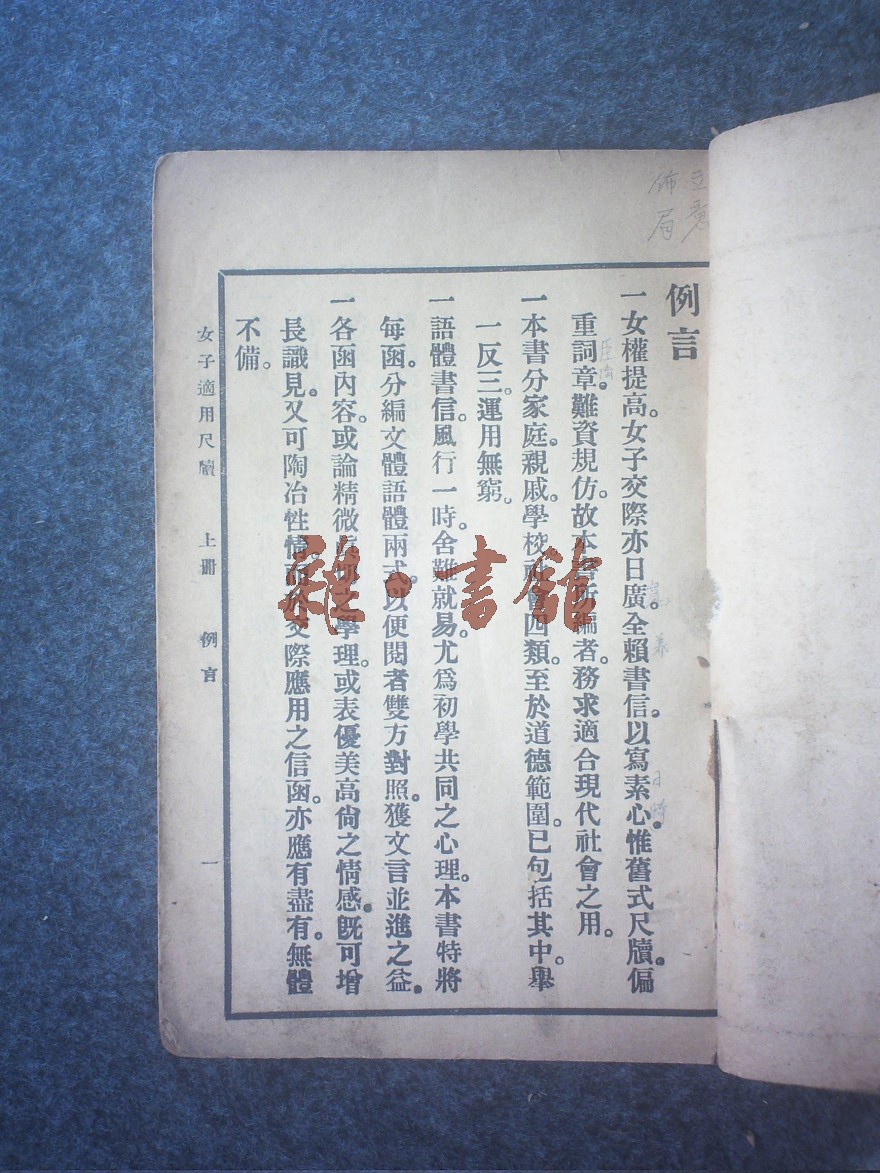 佈局
例言
一女權提高。女子交際亦日廣。全賴書信。以寫素心。惟舊式尺牘。偏
重詞章。難資規仿。故本書所編者。務求適合現代社會之用。
一本書分家庭。親戚。學校。社會四類。至於道德範圍。已包括其中。舉
一反三。運用無窮。
一語體書信。風行一時。舍難就易。尤爲初學共同之心理。本書特將
每函。分編文體語體兩式。以便閱者雙方對照。獲文言並進之益。
一各函內容。或論精微之學理。或表優美高尙之情感。旣可增
長識見。又可陶冶性情。而於交際應用之信函。亦應有盡有。無體
不備。
女子適用尺牘 上冊 例言 一
雜·書館